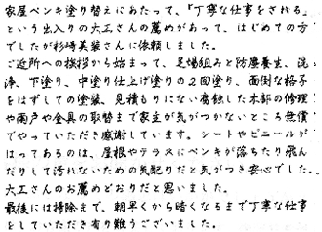 家屋ペンキ塗り替えにあたって、『丁寧な仕事をされる』
という出入りの大工さんの薦めがあって、はじめての方
でしたが杉崎美装さんに依頼しました。
ご近所への挨拶から始まって、足場組みと防塵養生、洗
浄、下塗り、中塗り仕上げ塗りの2回塗り、面倒な格子
をはずしての塗装、見積もりにない腐蝕した木部の修理
や雨戸や金具の取替まで家主が気がつかないところ無償
でやっていただき感謝しています。シートやビニールが
はってあるのは、屋根やテラスにペンキが落ちたり飛ん
だりして汚れないための気配りだと気がつき安心でした。
大工さんのお薦めどおりだと思いました。
最後には掃除まで、朝早くから暗くなるまで丁寧な仕事
をしていただき有り難うございました。